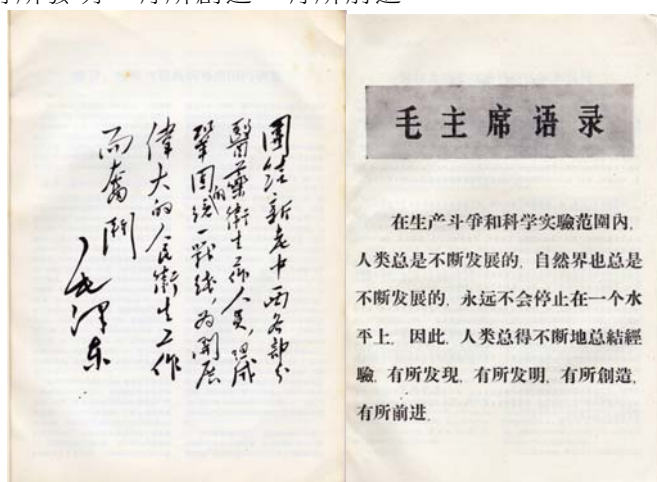 團結新老中西各部分
醫藥衛生工作人員,組成
鞏固的統一戰線,為開展
偉大的人民衛生工作
而奮鬥
毛澤东
毛主席语录
在生产斗爭和科学实驗范圍內,
人类总是不断发展的, 自然界也总是
不断发展的, 永远不会停止在一个水
平上. 因此, 人类总得不断地总結經
驗, 有所发現, 有所发明, 有所創造,
有所前进.